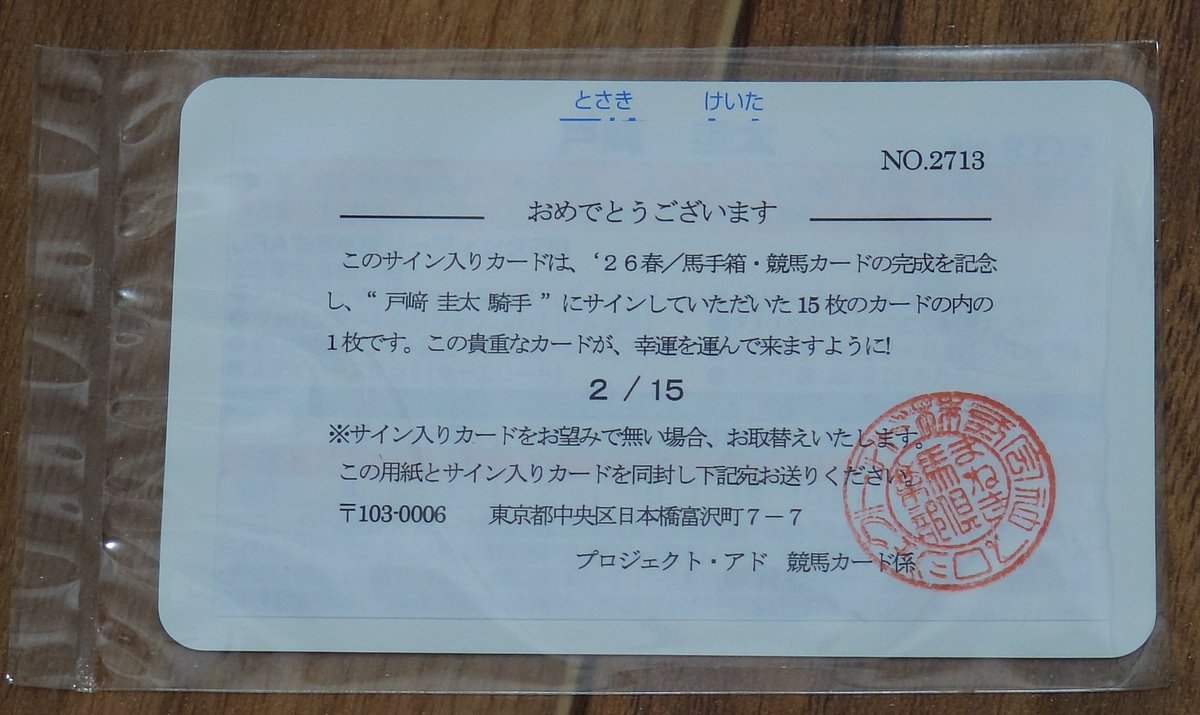 とさき けいた
NO.2713
おめでとうございます
このサイン入りカードは、‘26春／馬手箱・競馬カードの完成を記念
し、“ 戸﨑 圭太 騎手 ” にサインしていただいた 15 枚のカードの内の
1 枚です。この貴重なカードが、幸運を運んで来ますように!
2 / 15
※サイン入りカードをお望みで無い場合、お取替えいたします。
この用紙とサイン入りカードを同封し下記宛お送りください。
〒103-0006 東京都中央区日本橋富沢町７－７
プロジェクト・アド 競馬カード係